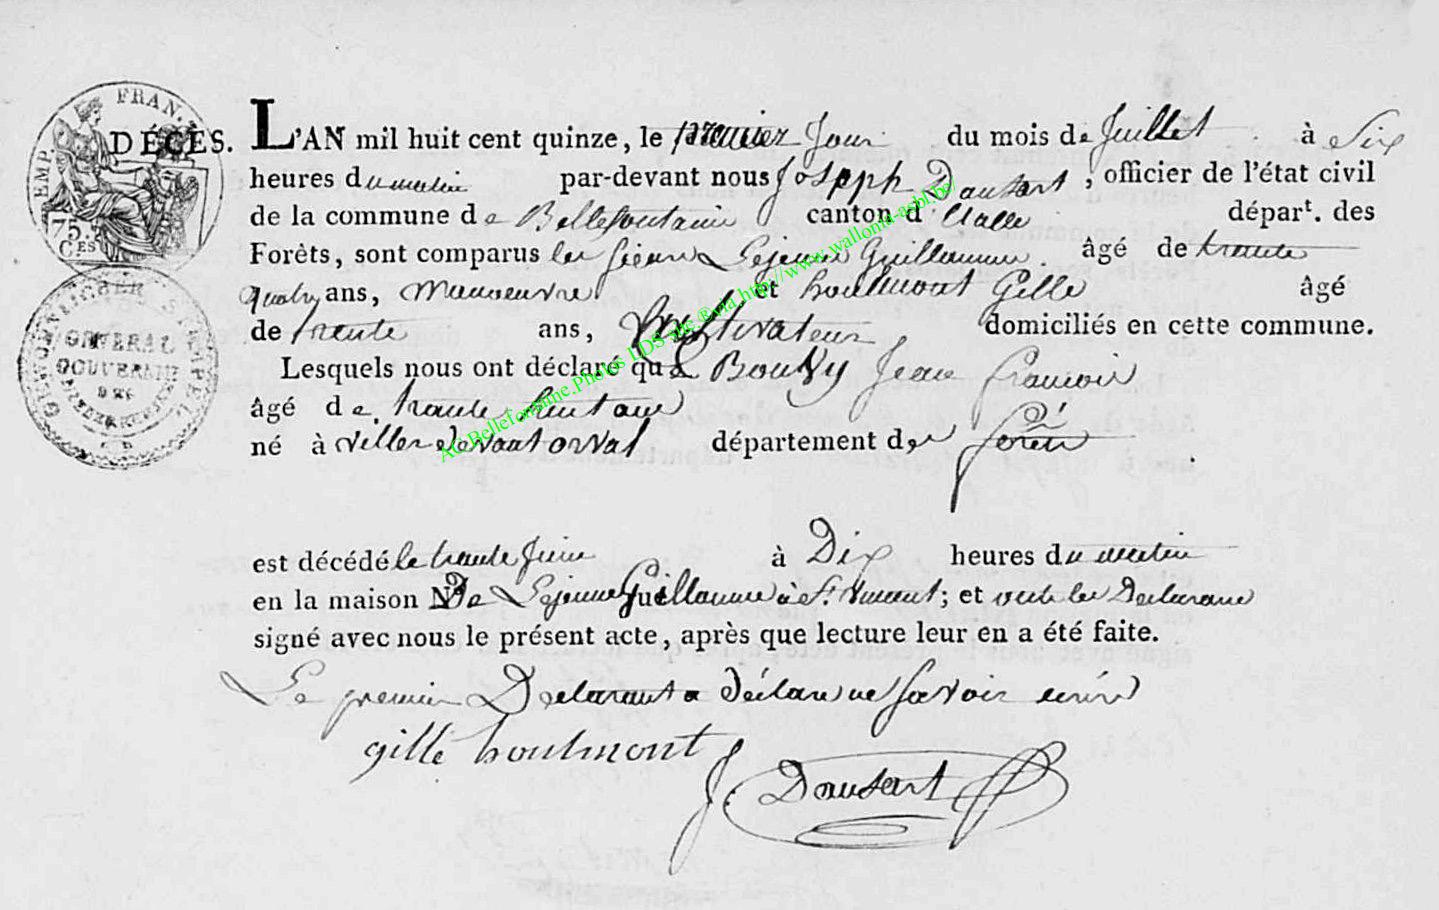 FRAN.
EMP.
75.
C.ES
GOUVERNEMENT
GENERAL
DÉCÈS. L'AN mil huit cent quinze, le premier Jour du mois de Juillet à Six
heures du matin par-devant nous Joseph Dausart, officier de l'état civil
de la commune de Bellefontaine canton d'Etalle départ. des
Forêts, sont comparus les sieurs Lejeune Guillaume âgé de trente
quatre ans, manoeuvre et houlmont Gille âgé
de trente ans, Cultivateur domiciliés en cette commune.
Lesquels nous ont déclaré que Bouvy Jean francois
âgé de trente huit ans
né à villers devant orval département des forêts
est décédé le trente Juin à Dix heures du matin
en la maison N° De Lejeune Guillaume à St. Vincent; et ont les Declarans
signé avec nous le présent acte, après que lecture leur en a été faite.
Le premier Declarant a déclaré ne savoir écrire
gille houlmont
J Dausart
AC Bellefontaine.Photos LDS site ®via http://www.wallonia-asbl.be/